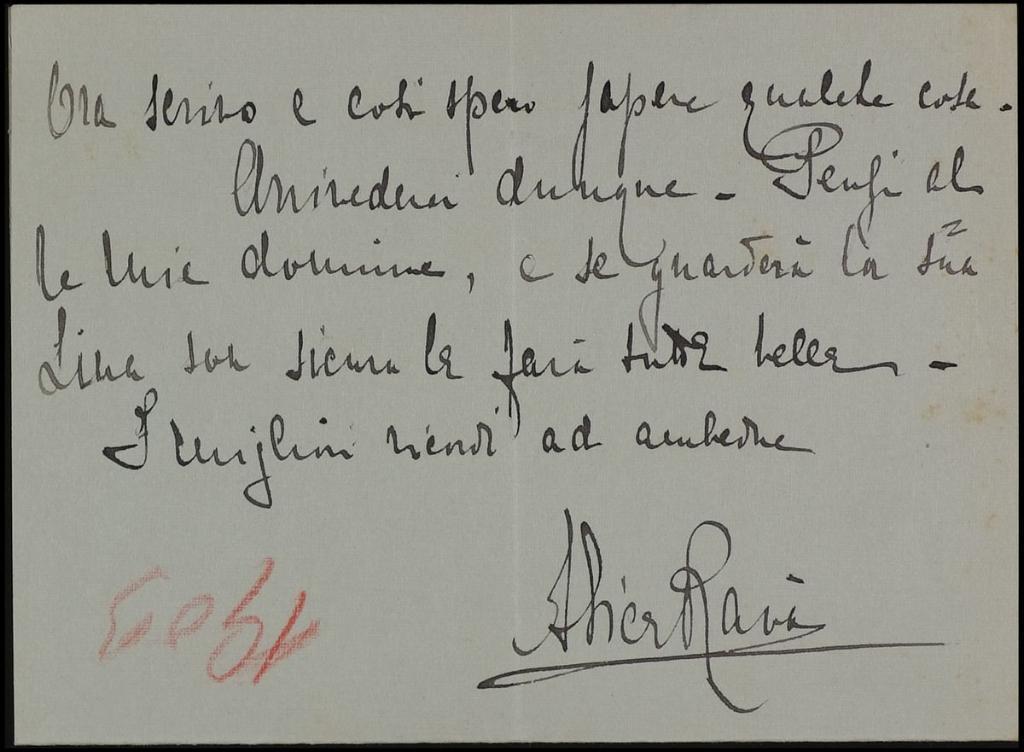 Ora scrivo e così spero sapere qualche cosa.
Arrivederci dunque - Pensi al
le mie donnine, e se guarderà la sua
Lina son sicura le farà tutte belle -
I migliori ricordi ad ambedue
Ravà